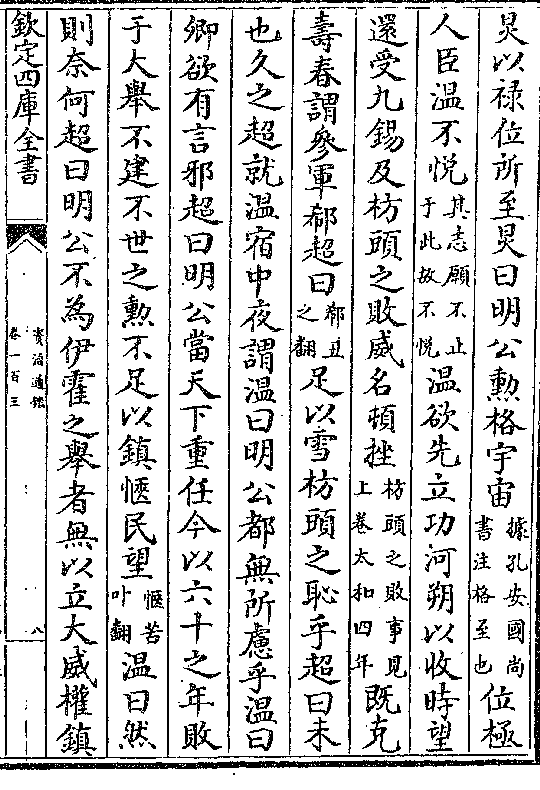 炅以禄位所至炅曰明公勲格宇宙據孔安國尚書注格至也位極
人臣温不悦其志願不止于此故不悦温欲先立功河朔以收時望
還受九錫及枋頭之敗威名頓挫枋頭之敗事見上卷太和四年既克
壽春謂參軍郗超曰郗丑之翻足以雪枋頭之恥乎超曰未
也久之超就温宿中夜謂温曰明公都無所慮乎温曰
卿欲有言邪超曰明公當天下重任今以六十之年敗
于大舉不建不世之勲不足以鎮愜民望愜苦叶翻温曰然
則奈何超曰明公不為伊霍之舉者無以立大威權鎮
欽定四庫全書
資治通鑑
卷一百三
八